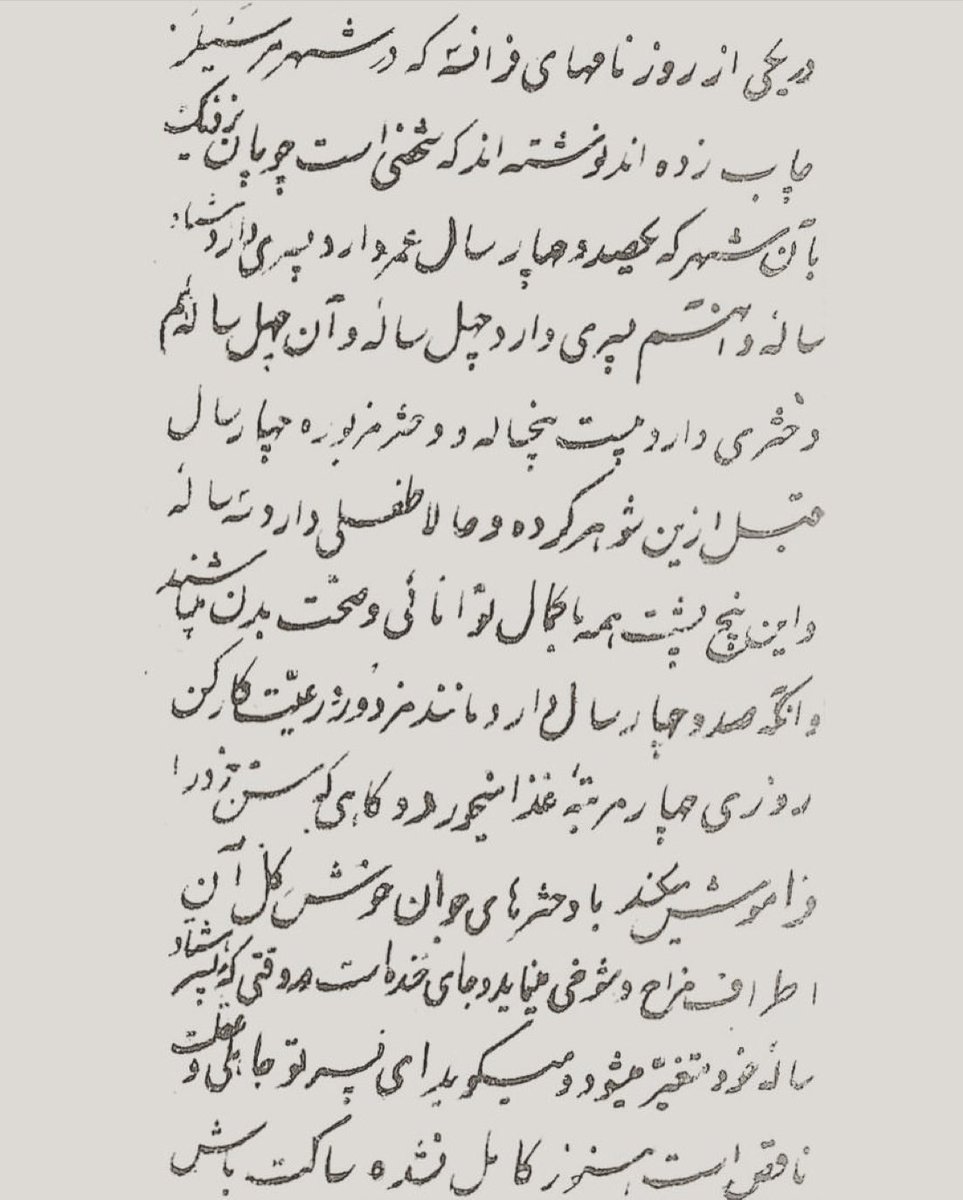 در یکی از روزنامهای فرانسه که در شهر مرسیلز
چاپ زده اند نوشته اند که شخصی است چوپان نزدیک
بآن شهر که یکصد و چهار سال عمر دارد پسری دارد هشتاد
ساله و آنهم پسری دارد چهل ساله و آن چهل ساله هم
دختری دارد بیست پنجساله و دختر مزبوره چهار سال
قبل ازین شوهر کرده و حالا طفلی دارد سه ساله
و این پنج پشت همه با کمال توانائی و صحّت بدن میباشند
و آنکه صد و چهار سال دارد مانند مزدور و رعیّت کارکن
روزی چهار مرتبه غذا میخورد و گاهی که سن خود را
فراموش میکند با دخترهای جوان خوشگل آن
اطراف مزاح و شوخی مینماید و جای خنده است در وقتی که به پسر هشتاد
ساله خود متغیّر میشود و میگوید ای پسر تو جاهلی و عقلت
ناقص است هنوز کامل نشده ساکت باش